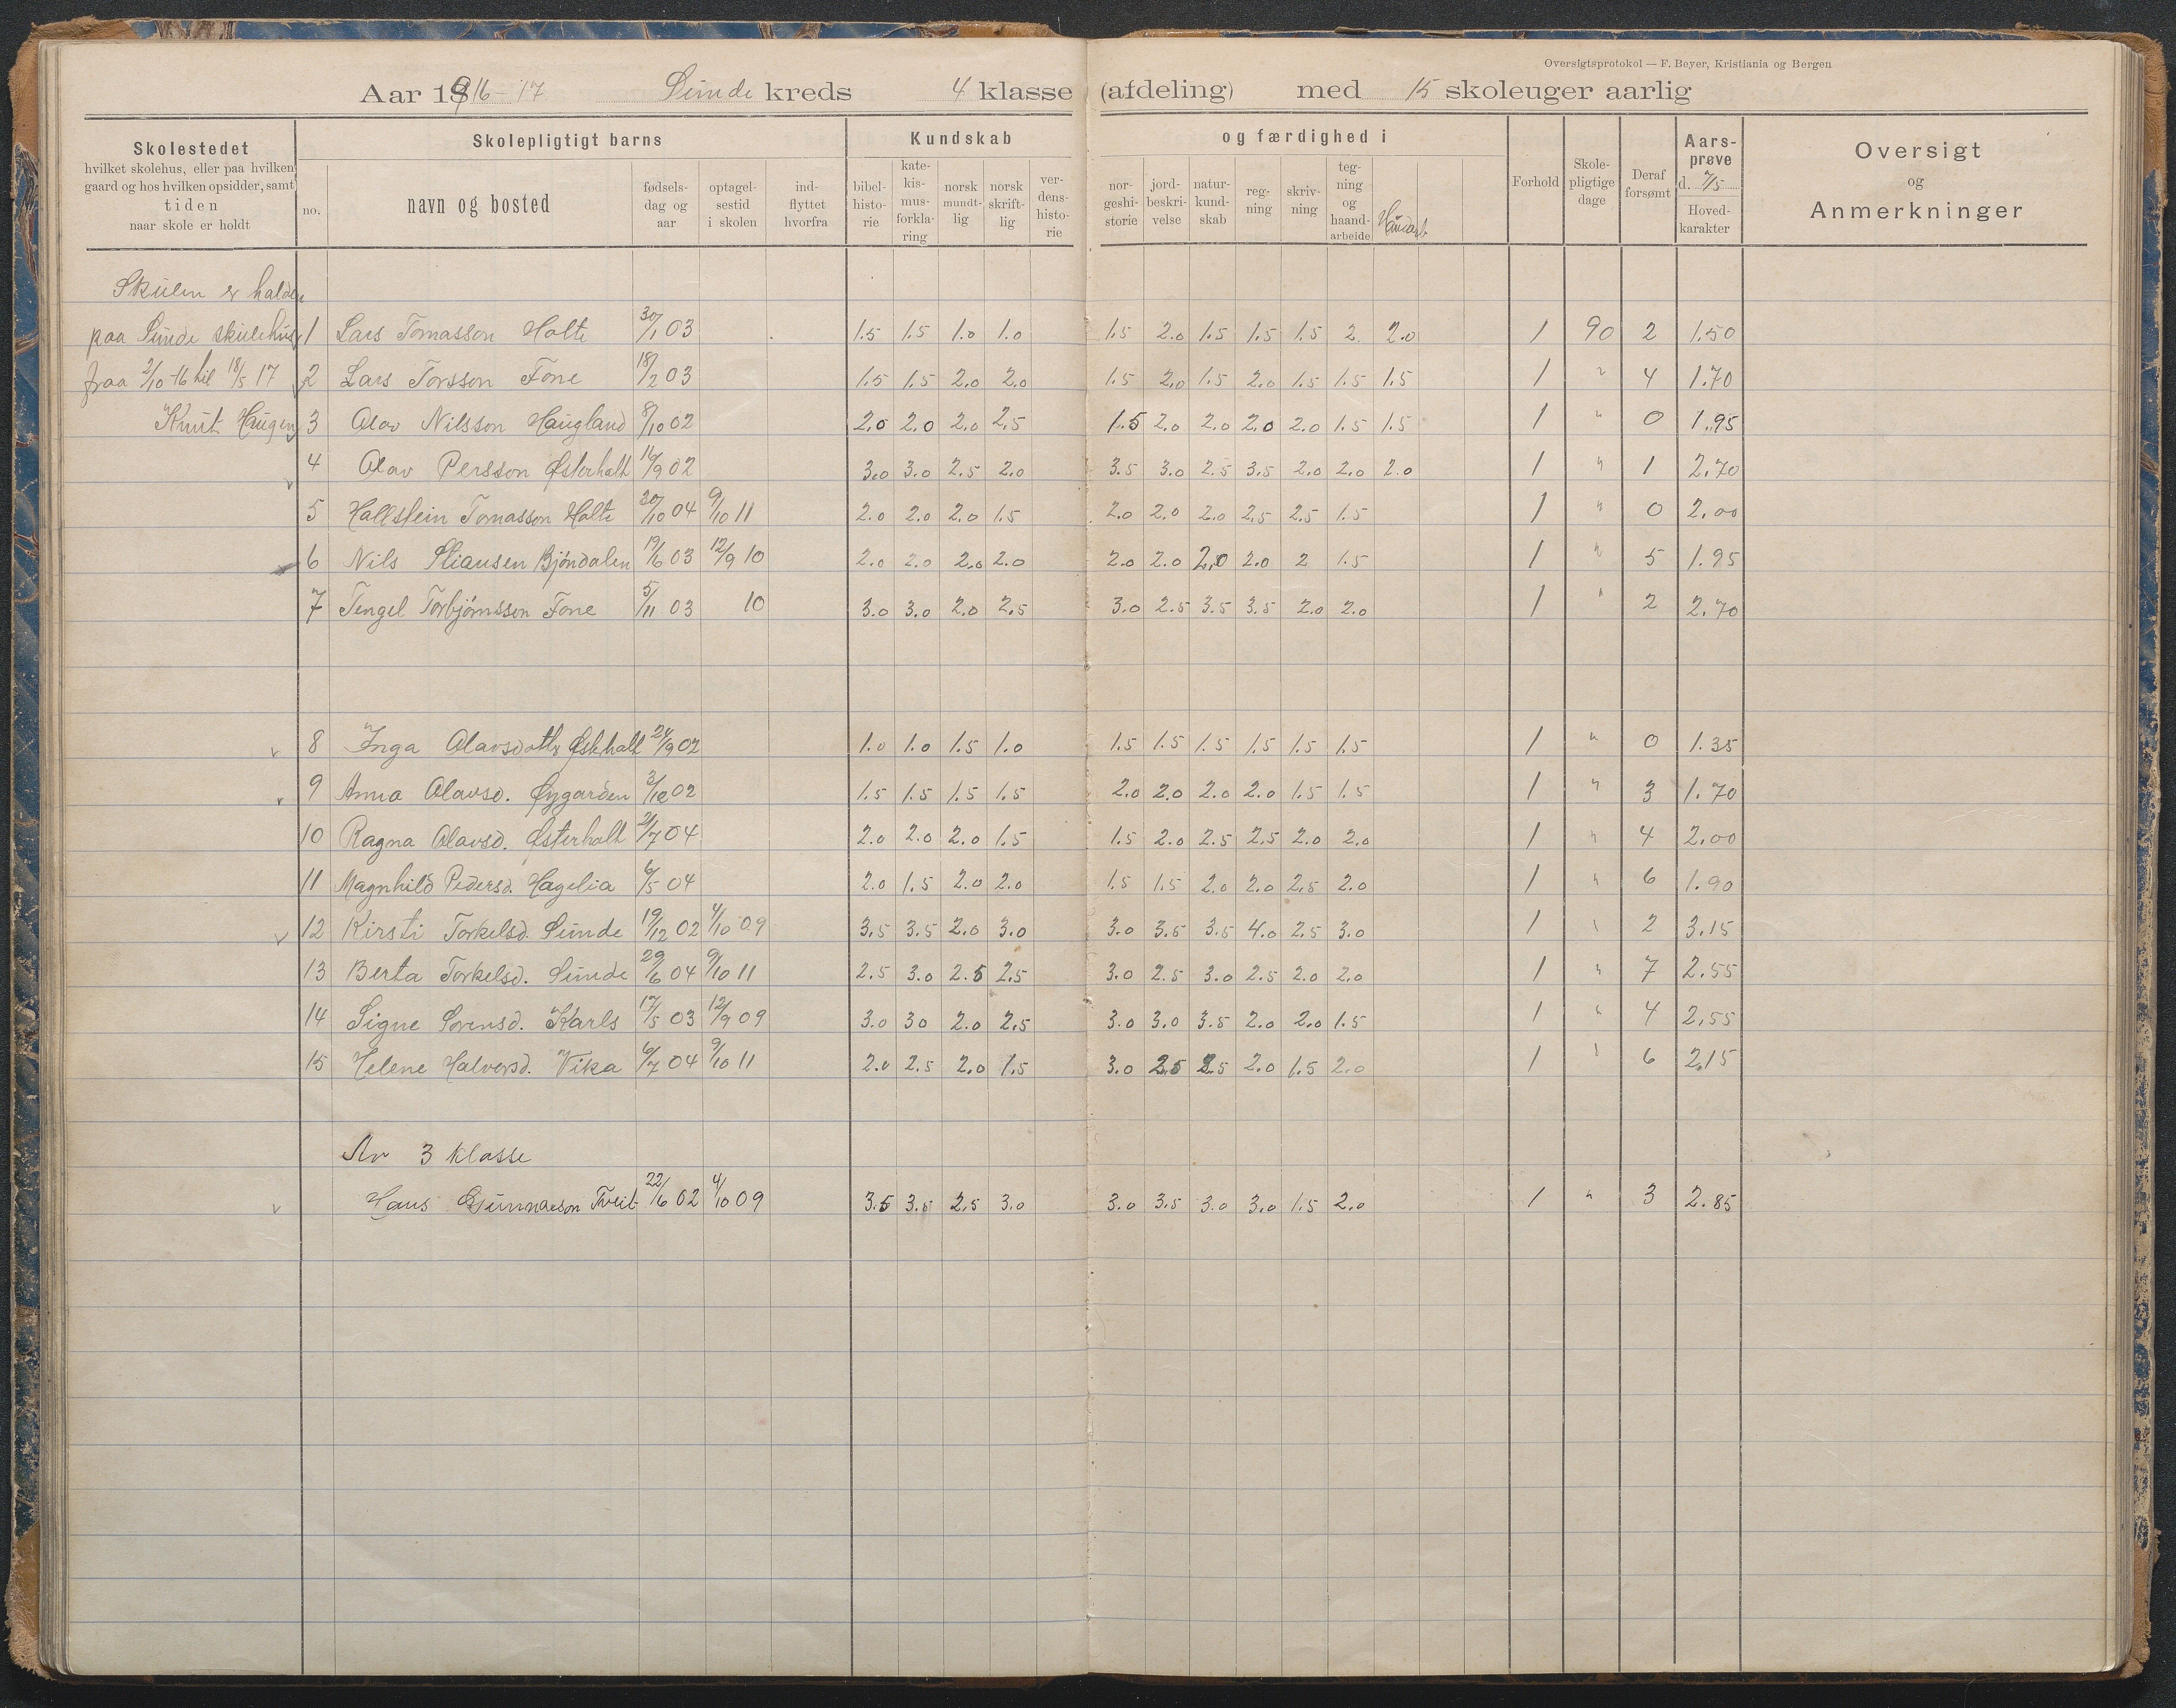 Oversigtsprotokol — F. Beyer, Kristiania og Bergen
Aar 1916-17 Sunde kreds 4 klasse (afdeling) med 15 skoleuger aarlig
Skolestedet hvilket skolehus, eller paa hvilken gaard og hos hvilken opsidder, samt tiden naar skole er holdt
Skolepligtigt barns
no. navn og bosted fødsels-dag og aar optagel-sestid i skolen ind-flyttet hvorfra
Kundskab og færdighed i
bibel-histo-rie kate-kis-mus-forkla-ring norsk mundt-lig norsk skrift-lig ver-dens-histo-rie nor-geshi-storie jord-beskri-velse natur-kund-skab reg-ning skriv-ning teg-ning og haand-arbeide Haandarb
Forhold Skole-pligtige dage Deraf forsømt Aars-prøve d. 7/5 Hoved-karakter
Oversigt og Anmerkninger
Skulen er halden
paa Sunde skulehus 1 Lars Tomasson Holte 30/1 03 1.5 1.5 1.0 1.0 1.5 2.0 1.5 1.5 1.5 2. 2.0 1 90 2 1.50
fraa 2/10-16 til 18/5 17 2 Lars Torsson Fone 18/2 03 1.5 1.5 2.0 2.0 1.5 2.0 1.5 2.0 1.5 1.5 1.5 1 " 4 1.70
Knut Haugen 3 Olav Nilsson Haugland 8/10 02 2.0 2.0 2.0 2.5 1.5 2.0 2.0 2.0 2.0 1.5 1.5 1 " 0 1.95
4 Olav Persson Østerholt 16/9 02 3.0 3.0 2.5 2.0 3.5 3.0 2.5 3.5 2.0 2.0 2.0 1 " 1 2.70
5 Hallstein Tomasson Holte 20/10 04 9/10 11 2.0 2.0 2.0 1.5 2.0 2.0 2.0 2.5 2.5 1.5 1 " 0 2.00
6 Nils Bjöndalen 19/6 03 12/9 10 2.0 2.0 2.0 2.0 2.0 2.0 2.0 2.0 2 1.5 1 " 5 1.95
7 Tengel Torbjörnsson Fone 5/11 03 10 3.0 3.0 2.0 2.5 3.0 2.5 3.5 3.5 2.0 2.0 1 " 2 2.70
8 Inga Olavsdotter Østerholt 24/9 02 1.0 1.0 1.5 1.0 1.5 1.5 1.5 1.5 1.5 1.5 1 " 0 1.35
9 Anna Olavsd. Øygarden 3/12 02 1.5 1.5 1.5 1.5 2.0 2.0 2.0 2.0 1.5 1.5 1 " 3 1.70
10 Ragna Olavsd. Østerholt 21/7 04 2.0 2.0 2.0 1.5 1.5 2.0 2.5 2.5 2.0 2.0 1 " 4 2.00
11 Magnhild Pedersd. Hagelia 6/5 04 2.0 1.5 2.0 2.0 1.5 1.5 2.0 2.0 2.5 2.0 1 " 6 1.90
12 Kirsti Torkelsd. Sunde 19/12 02 4/10 09 3.5 3.5 2.0 3.0 3.0 3.5 3.5 4.0 2.5 3.0 1 " 2 3.15
13 Berta Torkelsd. Sunde 29/6 04 9/10 11 2.5 3.0 2.5 2.5 3.0 2.5 3.0 2.5 2.0 2.0 1 " 7 2.55
14 Signe Sorensd. Karls 17/5 03 12/9 09 3.0 30 2.0 2.5 3.0 3.0 3.5 2.0 2.0 1.5 1 " 4 2.55
15 Helene Halvorsd. Vika 6/7 04 9/10 11 2.0 2.5 2.0 1.5 3.0 2.5 2.5 2.0 1.5 2.0 1 " 6 2.15
Av 3 klasse
Hans Gunnarson Tveit 22/6 02 4/10 09 3.5 3.5 2.5 3.0 3.0 3.5 3.0 3.0 1.5 2.0 1 " 3 2.85